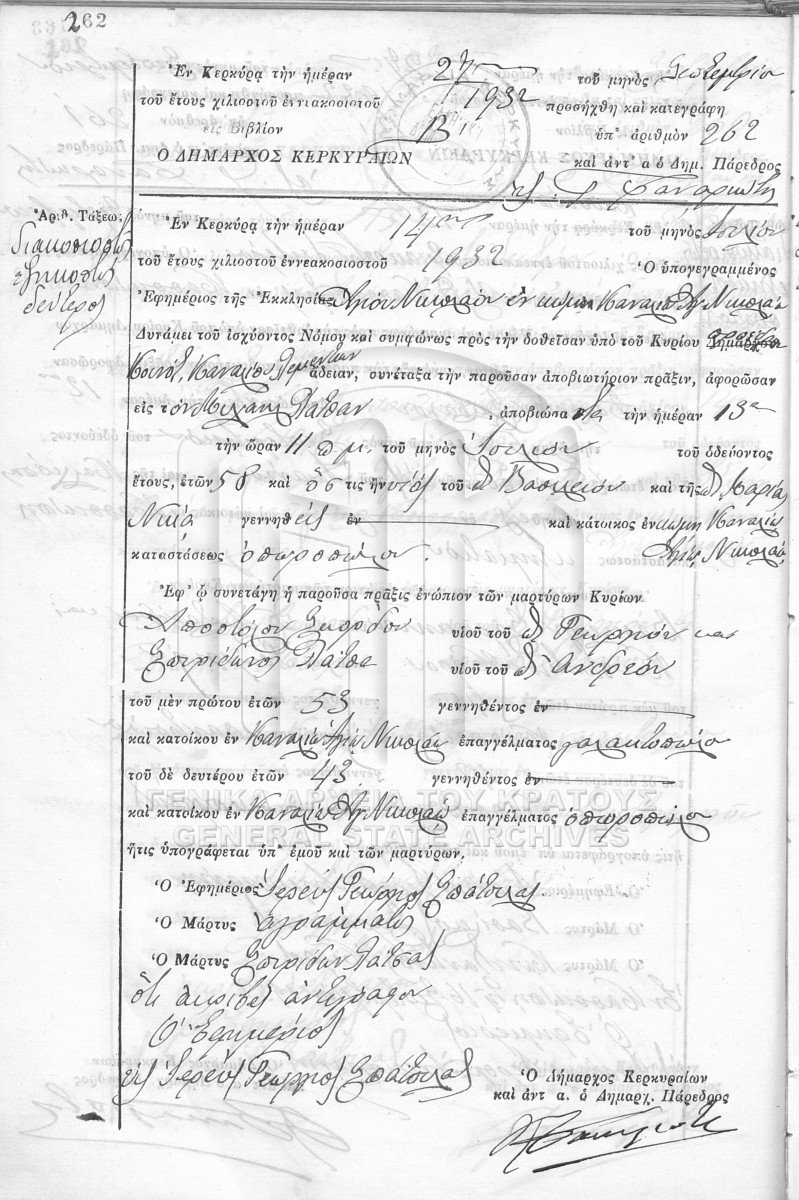 262
Ἐν Κερκύρᾳ τὴν ἡμέραν 27 τοῦ μηνὸς Σεπτεμβρίου
τοῦ ἔτους χιλιοστοῦ ἐννιακοσιοστοῦ 1932 προσήχθη καὶ κατεγράφη
εἰς Βιβλίον Β' ὑπ' ἀριθμὸν 262
Ο ΔΗΜΑΡΧΟΣ ΚΕΡΚΥΡΑΙΩΝ καὶ ἀντ' α ὁ Δημ. Πάρεδρος
Ἀριθ. Τάξεως
διακοσιοστὸς
ἑξηκοστὸς
δεύτερος
Ἐν Κερκύρᾳ τὴν ἡμέραν 14ην τοῦ μηνὸς Ἰουλίου
τοῦ ἔτους χιλιοστοῦ ἐννεακοσιοστοῦ 1932 Ὁ ὑπογεγραμμένος
Ἐφημέριος τῆς Ἐκκλησίας Ἁγίου Νικολάου ἐν κώμῃ Καναλίων Ἁγ Νικολάου
Δυνάμει τοῦ ἰσχύοντος Νόμου καὶ συμφώνως πρὸς τὴν δοθεῖσαν ὑπὸ τοῦ Κυρίου
Κοινότ. Καναλίων ἄδειαν, συνέταξα τὴν παροῦσαν ἀποβιωτήριον πρᾶξιν, ἀφορῶσαν
εἰς τὸν Μιχαὴλ Λάτσαν, ἀποβιώσαντα τὴν ἡμέραν 13ην
τὴν ὥραν 11 π.μ. τοῦ μηνὸς Ἰουλίου τοῦ ὁδεύοντος
ἔτους, ἐτῶν 58 καὶ ὅστις ἦν υἱὸς τοῦ Βασιλείου καὶ τῆς Μαρίας
γεννηθεὶς ἐν καὶ κάτοικος ἐν κώμῃ Καναλίων
καταστάσεως ὀπωροπώλου. Ἁγίου Νικολάου
Ἐφ' ᾧ συνετάγη ἡ παροῦσα πρᾶξις ἐνώπιον τῶν μαρτύρων Κυρίων
Ἀποστόλου υἱοῦ τοῦ Γεωργίου καὶ
Σπυρίδωνος Λάτσα υἱοῦ τοῦ Ἀνδρέου
τοῦ μὲν πρώτου ἐτῶν 53 γεννηθέντος ἐν
καὶ κατοίκου ἐν Καναλίων Ἁγίου Νικολάου ἐπαγγέλματος γαλακτοπώλου
τοῦ δὲ δευτέρου ἐτῶν 43 γεννηθέντος ἐν
ΓΕΝΙΚΑ ΑΡΧΕΙΑ ΤΟΥ ΚΡΑΤΟΥΣ
καὶ κατοίκου ἐν Καναλίων Ἁγ Νικολάου ἐπαγγέλματος ὀπωροπώλου
GENERAL STATE ARCHIVES
ἥτις ὑπογράφεται ὑπ' ἐμοῦ καὶ τῶν μαρτύρων.
Ὁ Ἐφημέριος Ἱερεὺς Γεώργιος Σπάτουλας
Ὁ Μάρτυς ἀγράμματος
Ὁ Μάρτυς Σπυρίδων Λάτσας
ὅτι ἀκριβὲς ἀντίγραφον
Ὁ Ἐφημέριος
Ἱερεὺς Γεώργιος Σπάτουλας
Ὁ Δήμαρχος Κερκυραίων
καὶ ἀντ α. ὁ Δημαρχ. Πάρεδρος